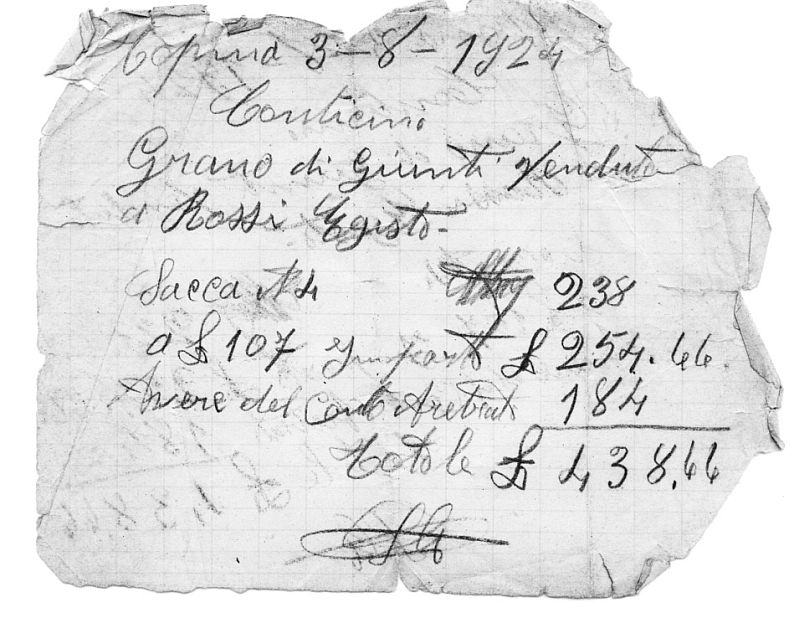 Topina 3-8-1924
Conticini
Grano di Giunti Venduto
a Rossi Egisto-
Sacca N 4 238
a £ 107 Importo £ 254.66.
Avere del Conto Aretrato 184
Totale £ 438.66